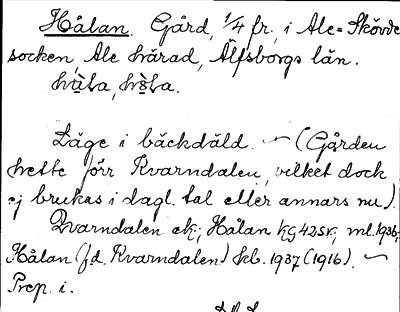 Hålan. Gård, 1/4 fr., i Ale-Skövde
socken Ale härad, Älfsborgs län.
Läge i bäckdäld. — (Gården
hette förr Kvarndalen, vilket dock
ej brukas i dagl. tal eller annars nu).
Kvarndalen ek; Hålan kg 42sv; ml. 1936;
Hålan (f.d. Kvarndalen) kb. 1937 (1916). —
Prep. i.